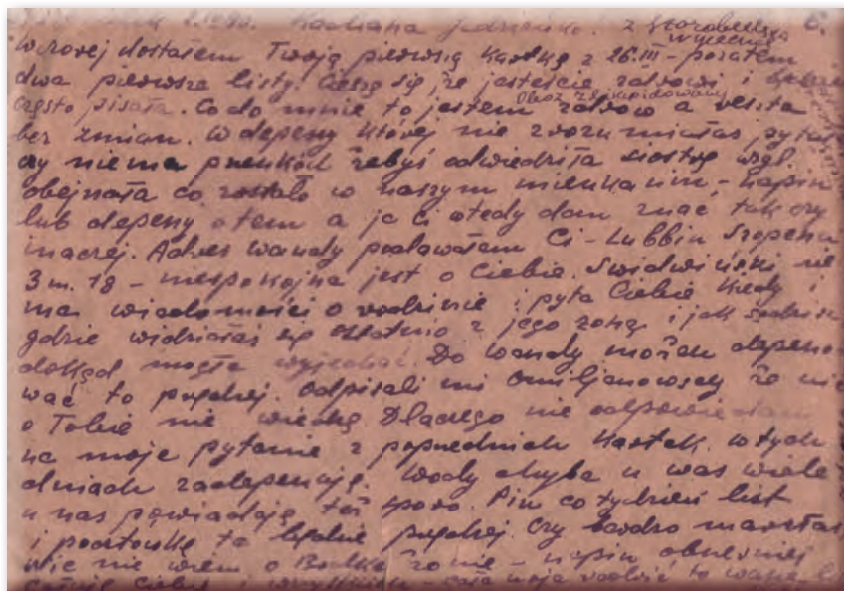 1940. Kochana Jadzieńko. z Starobielska 6.
wyjechał
Wczoraj dostałem Twoją pierwszą kartkę z 26.III - poza tem
dwa pierwsze listy. Cieszę się, że jesteście zdrowi i
często pisała. Co do mnie to jestem zdrów a reszta
Obóz zlikwidowany
bez zmian. W depeszy której nie zrozumiałaś pytał
czy niema przeszkód żebyś odwiedziła siostrę wzgl.
objęła co zostało w naszym mieszkaniu - napisz
lub depeszuj o tem a ja Ci wtedy dam znać tak czy
inaczej. Adres Wandy podawałem Ci - Lubbin Szopena
3 m. 18 - niespokojna jest o Ciebie. Świdwiński nie
ma wiadomości o rodzinie i pyta Ciebie kiedy i
gdzie widziałaś się ostatnio z jego żoną i jak sądzisz
dokąd mogła wyjechać. Do Wandy możesz depeszo-
wać to prędzej. Odpisali mi Omiljanowscy że nic
o Tobie nie wiedzą. Dlaczego nie odpowiedziałaś
na moje pytanie z poprzednich kartek. W tych
dniach zadepeszuję. Wody chyba u was wiele
u nas powiadają też sporo. Pisz co tydzień list
i pocztówkę to będzie prędzej. Czy bardzo
nic nie wiem o - napisz obszerniej
całuję Ciebie i wszystkich - cała moja radość to wasze